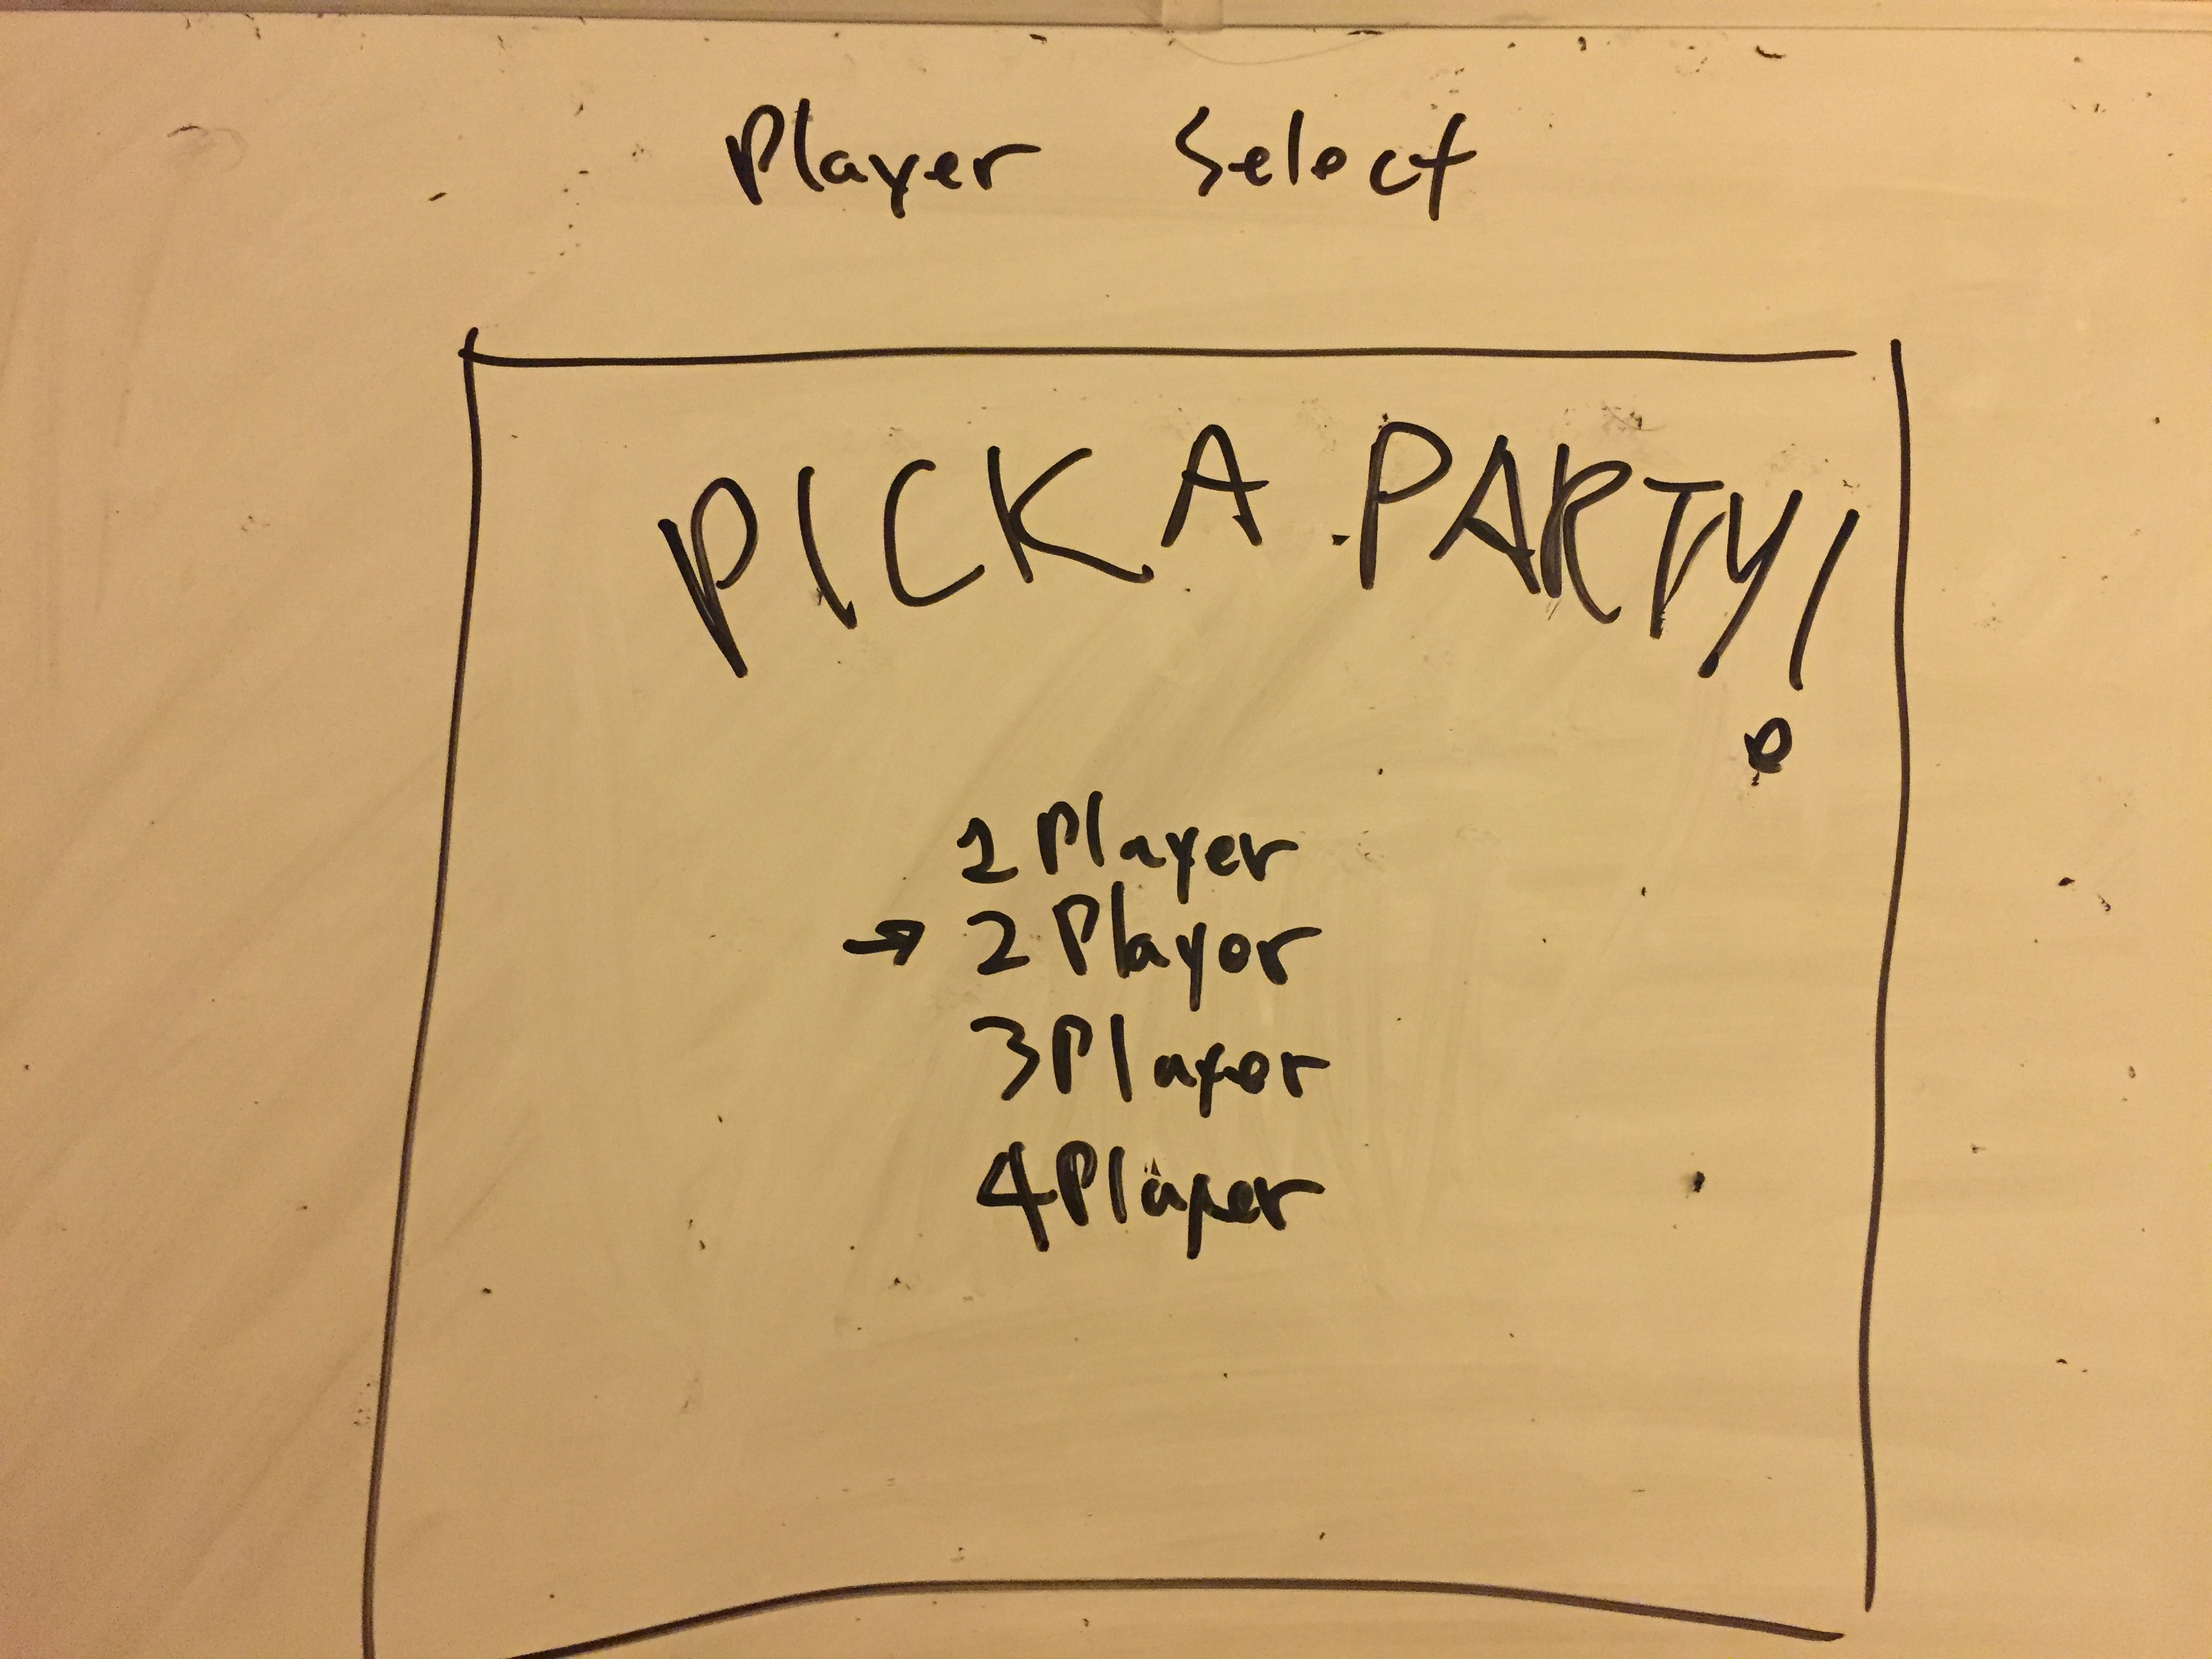 Player Select
PICK A PARTY!
1 Player
→ 2 Player
3 Player
4 Player